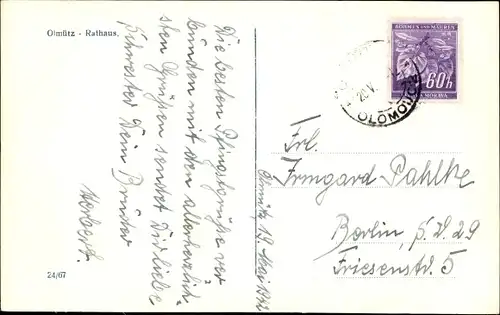 Olmütz - Rathaus.
Die besten Pfingstgrüße ver
bunden mit den allerherzlich
sten Grüßen sendet Dir liebe
Schwester Dein Bruder
Herbert.
Olmütz, 19. Mai 1942
24/67
BÖHMEN UND MÄHREN
60h
MORAVA
OLOMOUC
20.V.
Frl.
Irmgard Pahlke
Berlin, S.W. 29
Friesenstr. 5